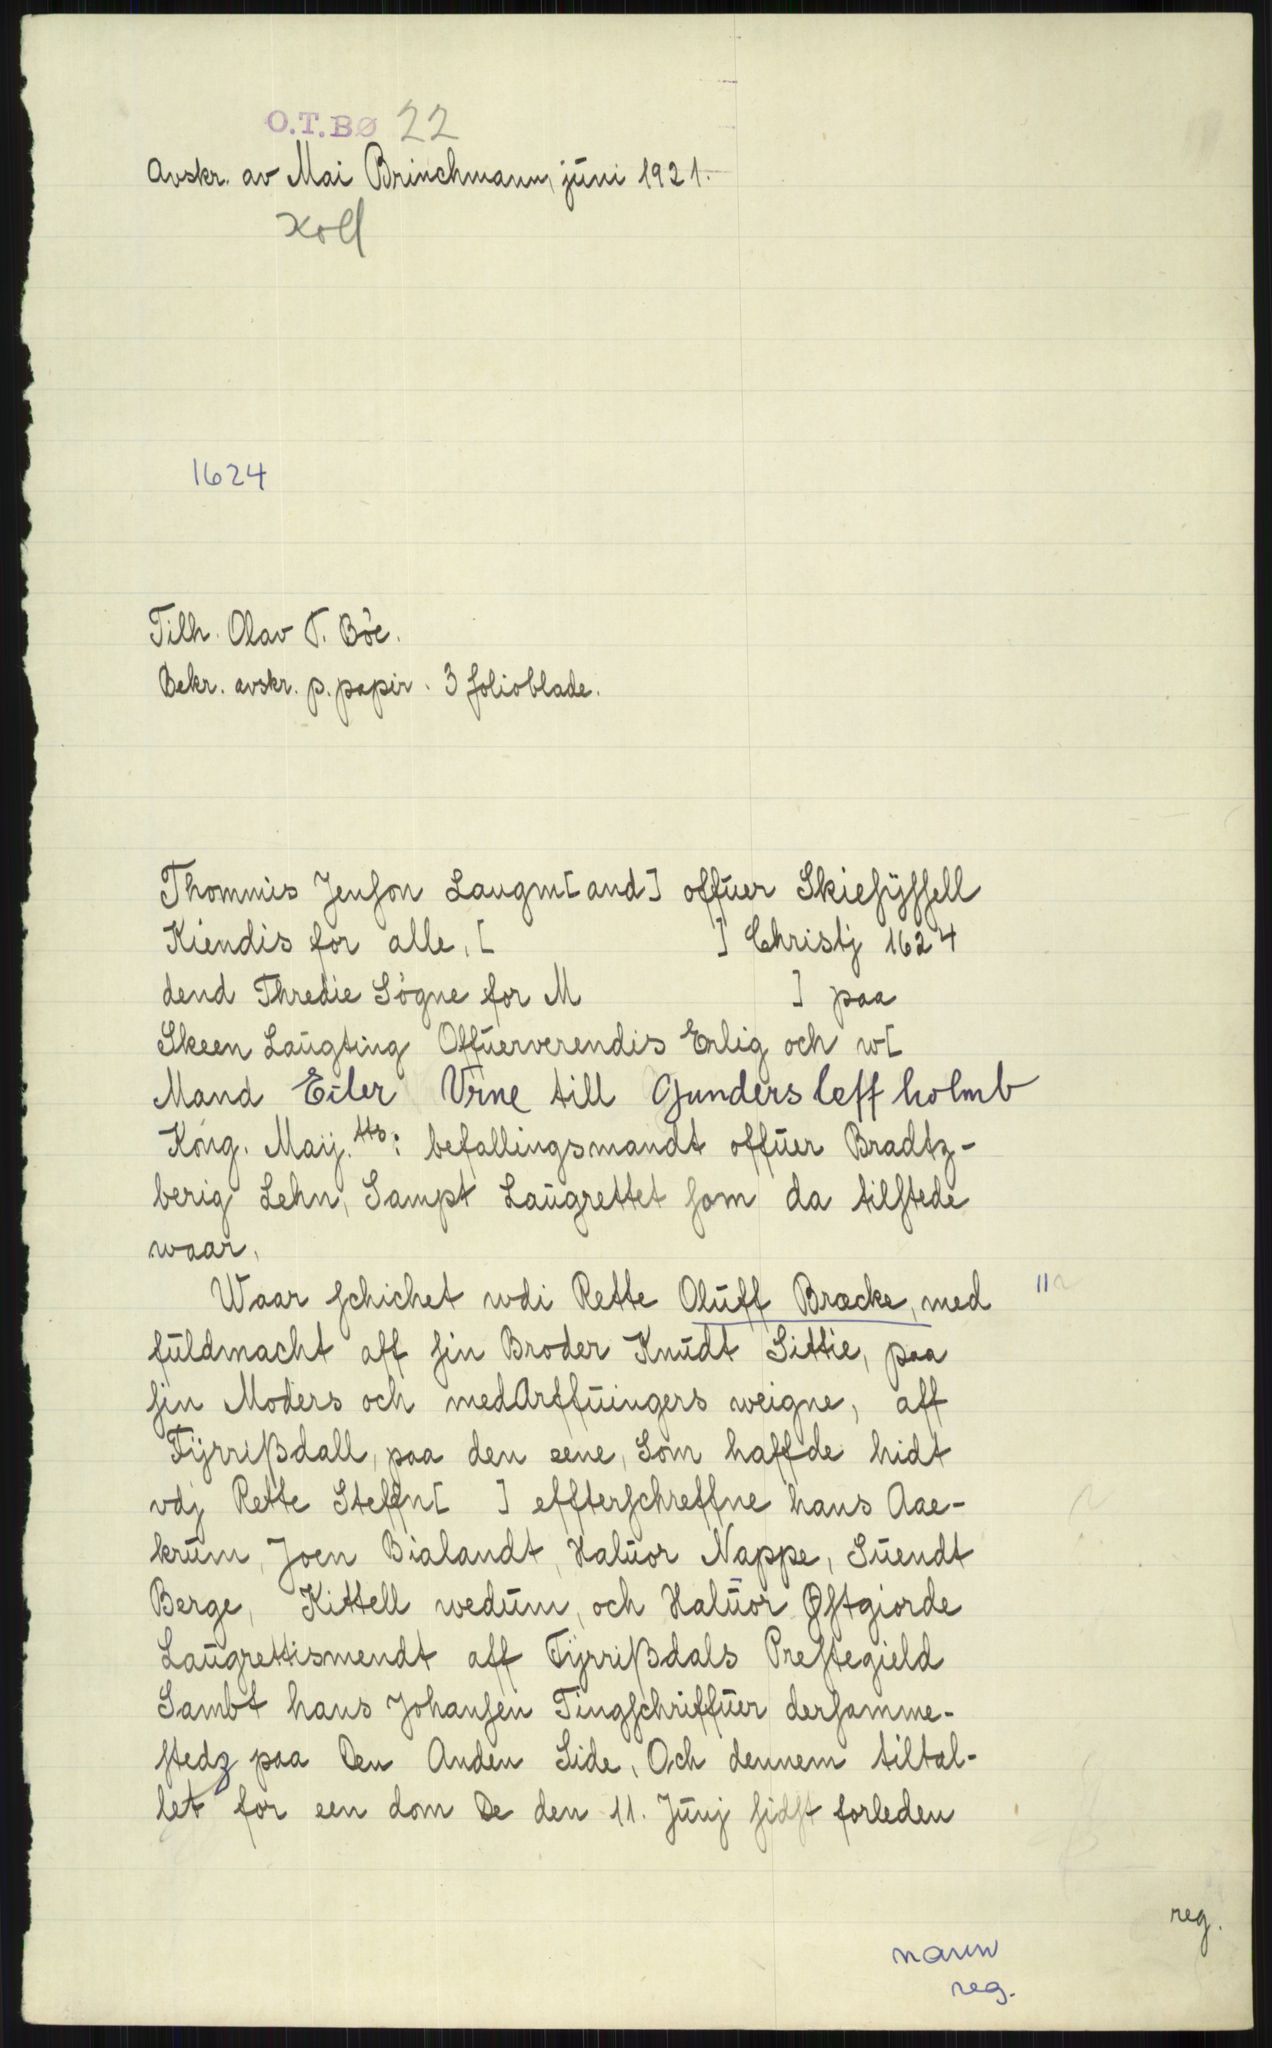 O.T.BØ 22
Avskr. av Mai Brinchmann, juni 1921.
Koll
1624
Tilh. Olav T. Böe.
Bekr. avskr. p. papir. 3 folioblade.
Thommis Jenson Laugm[and] offuer Skiesyssell
Kiendis for alle, [ ] Christj 1624
dend Thredie Søgne for M ] paa
Skeen Laugting Offuerverendis Erlig och w[
Mand Eiler Vrne till Gundersleffholmb
Kong. Maij.tts: befallingsmandt offuer Bradtz-
berig Lehn, Sampt Laugrettet som da tilstede
waar.
Waar schichet wdi Rette Oluff Bræcke, med
fuldmacht aff sin Broder Knudt Sittie, paa
sin Moders och medArffuingers weigne, aff
Tÿrrißdall, paa den eene, Som haffde hidt
vdj Rette Steffn[ ] effterschreffne hans Aae-
krum, Joen Bialandt, Haluor Nappe, Suendt
Berge, Kittell wedum, och Haluor Øftgiorde
Laugrettismendt aff Tÿrrißdals Prestegield
Sambt hans Johansen Tingschriffuer dersamme-
stedz paa Den Anden Side, Och dennem tiltal-
let for een dom De den 11. Junj sidst forleden
reg.
navn
reg.